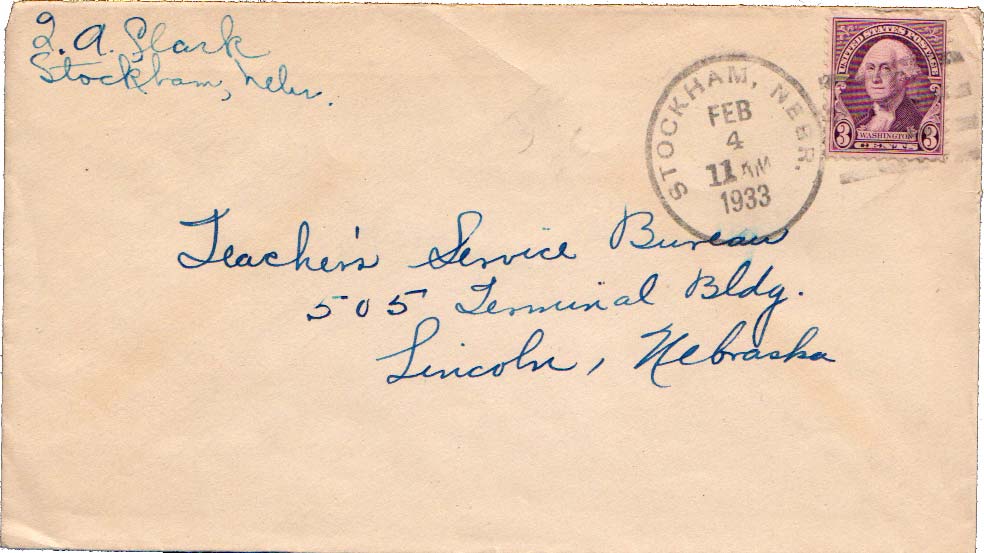 Q. A. Slark
Stockham, Nebr.
STOCKHAM, NEBR.
FEB
4
11 AM
1933
UNITED STATES POSTAGE
3 WASHINGTON 3
CENTS
Teacher's Service Bureau
505 Terminal Bldg.
Lincoln, Nebraska